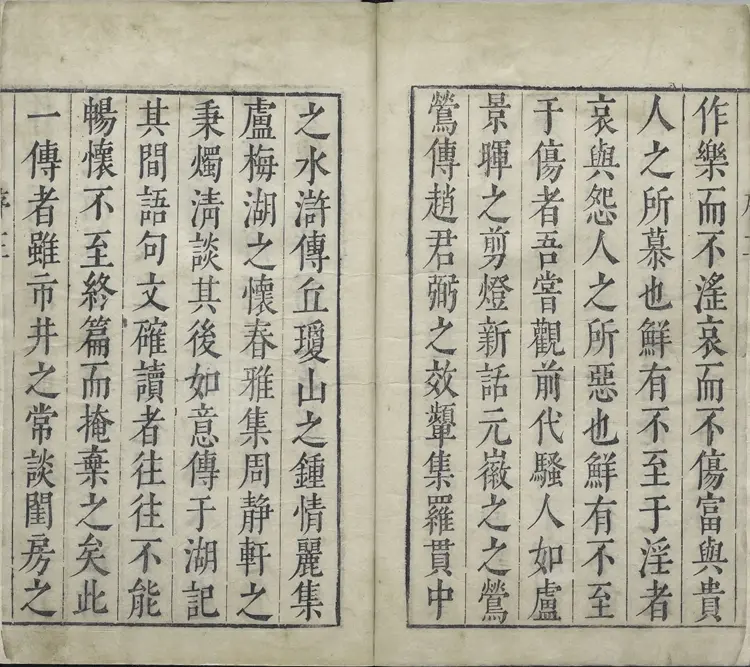 作樂而不滛哀而不傷富與貴
人之所慕也鮮有不至于淫者
哀與怨人之所惡也鮮有不至
于傷者吾嘗觀前代騷人如盧
景暉之剪燈新話元微之之鶯
鶯傳趙君弼之效顰集羅貫中
之水滸傳丘瓊山之鍾情麗集
盧梅湖之懷春雅集周靜軒之
秉燭清談其後如意傳于湖記
其間語句文確讀者往往不能
暢懷不至終篇而掩棄之矣此
一傳者雖市井之常談閨房之